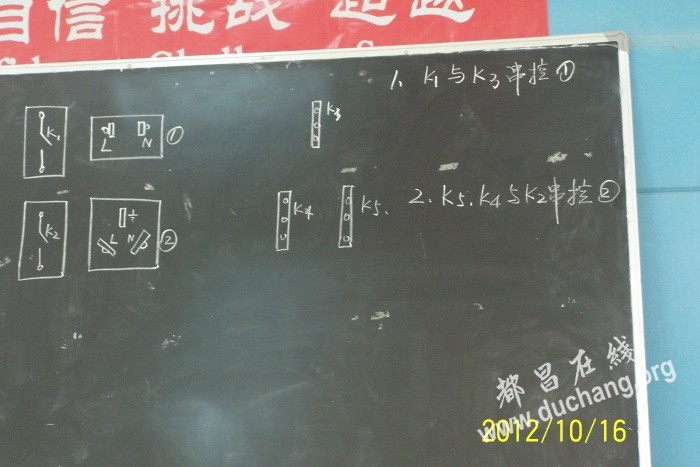 自信 挑战 超越
1、K1与K3串控①
K1
L N ①
K3
2、K5、K4与K2串控②
K2
L N ②
K4
K5、
都昌在线
www.duchang.org
2012/10/16